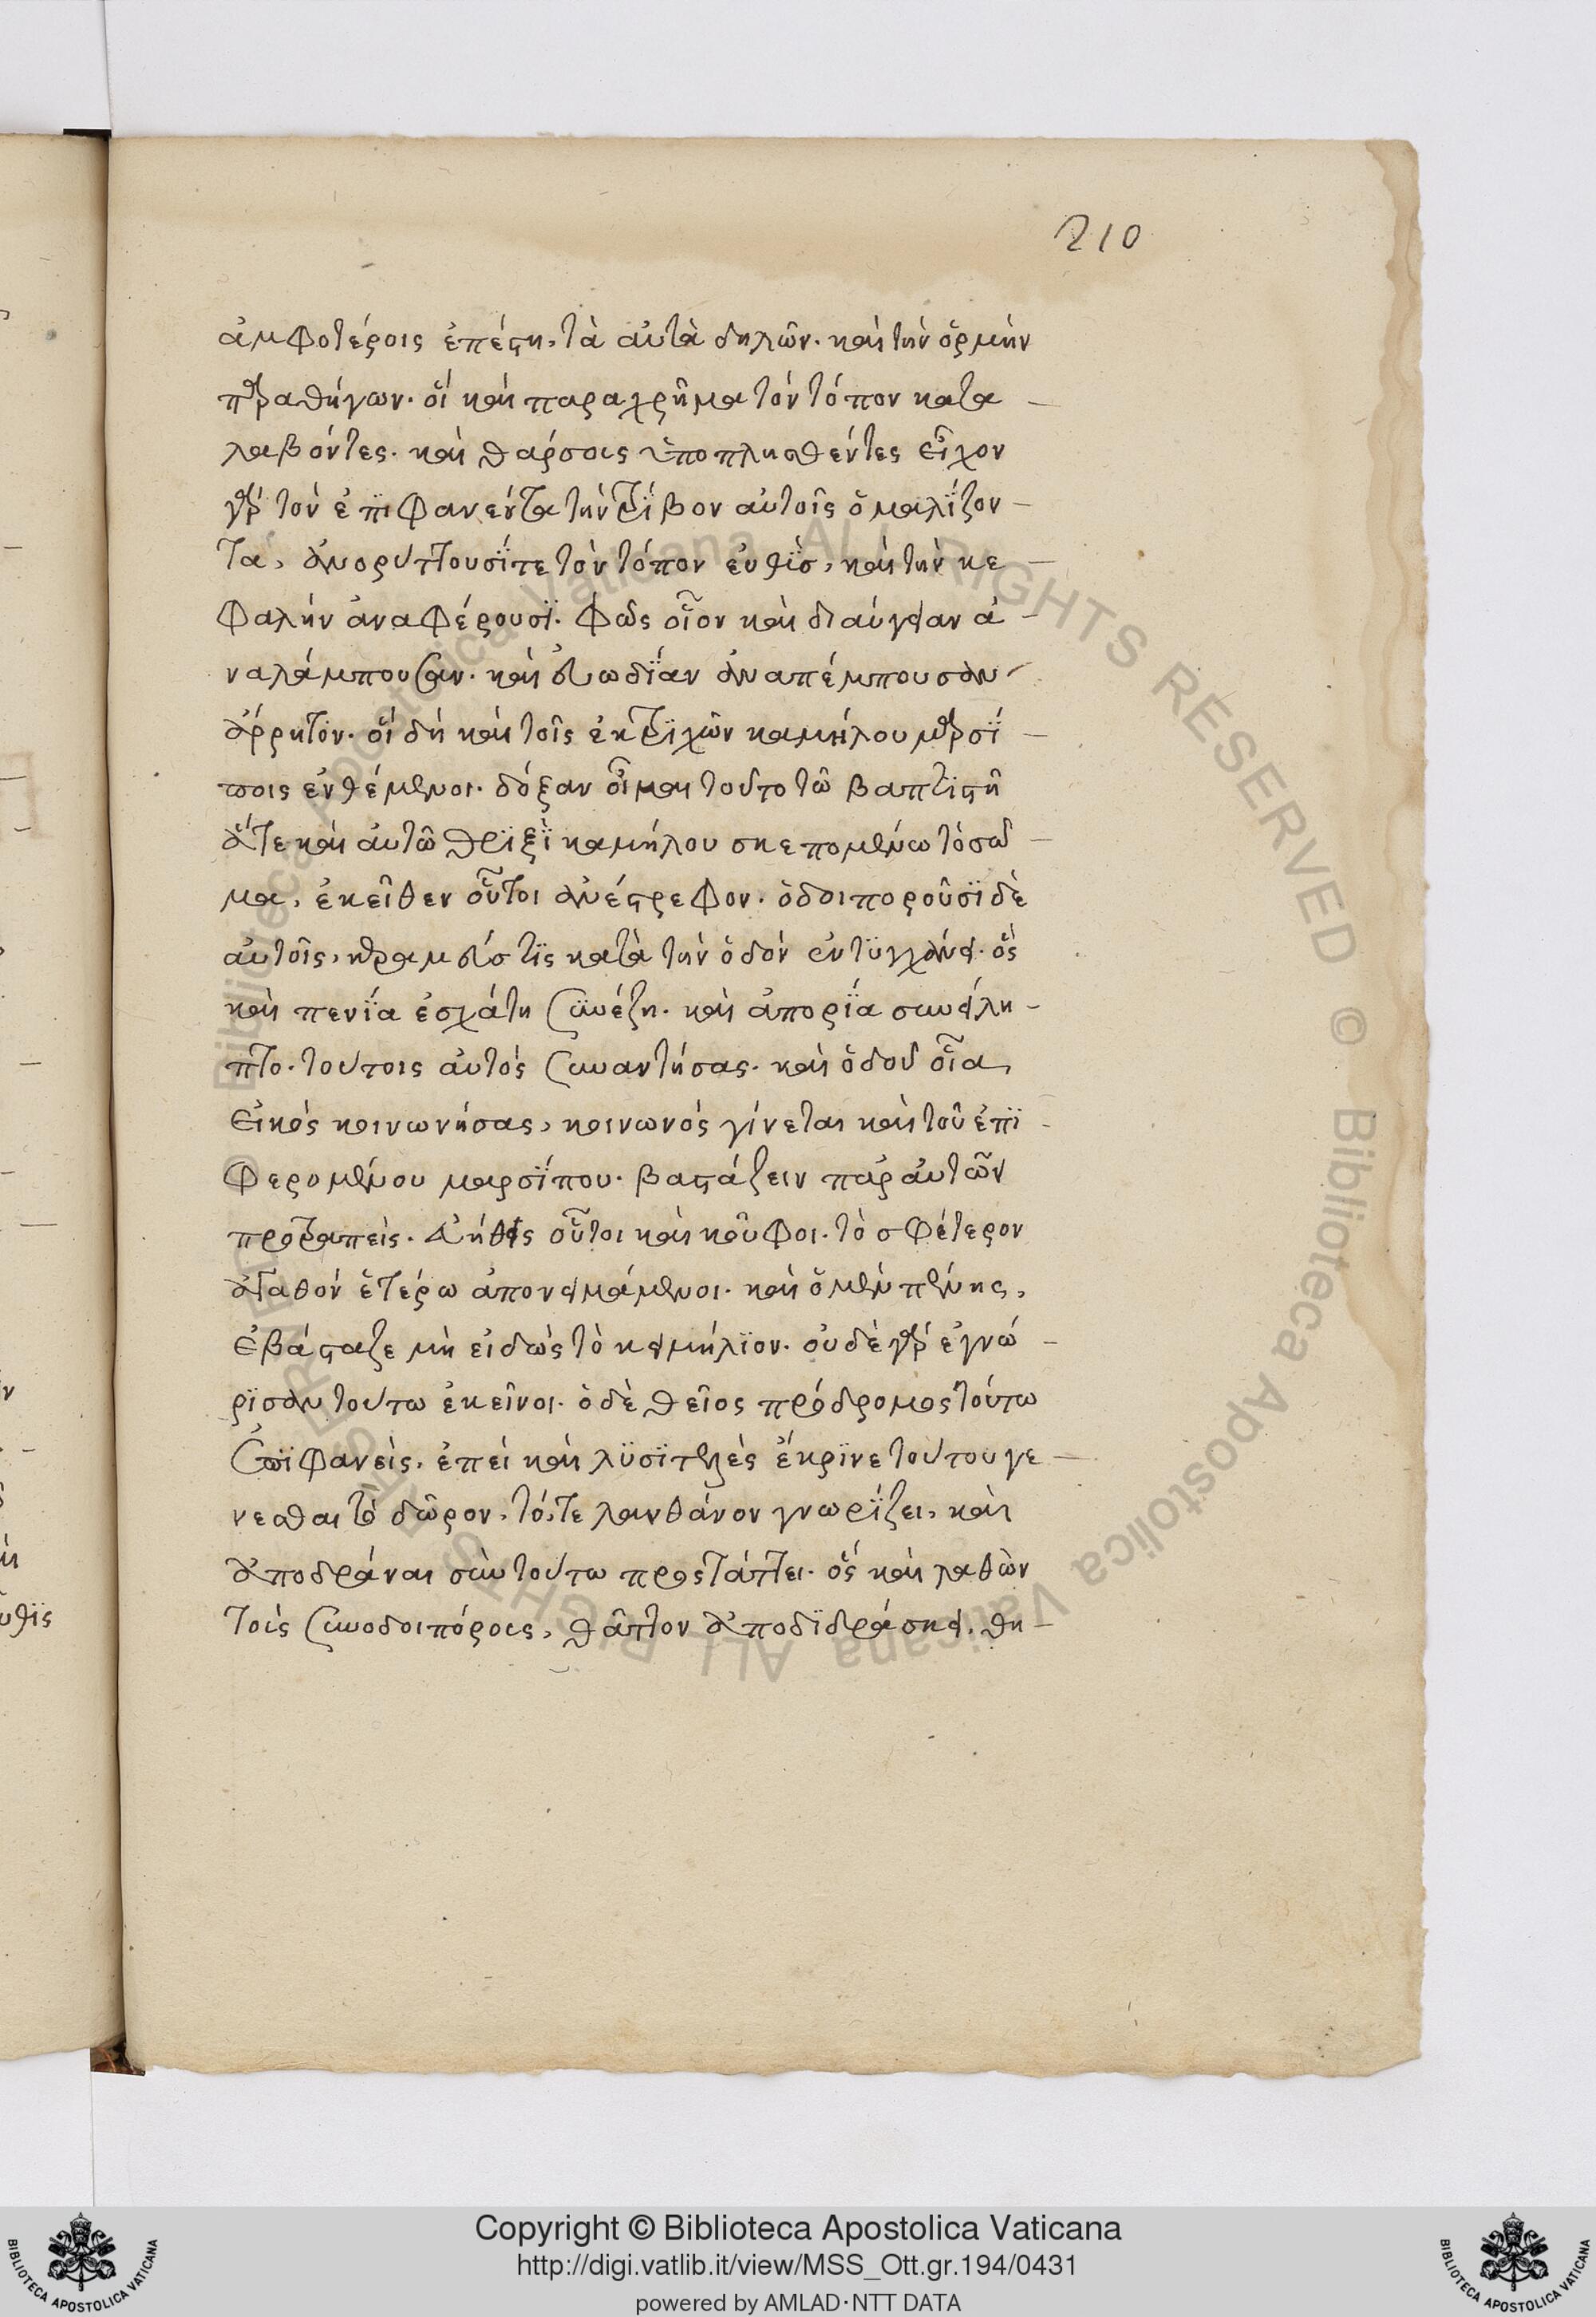 210
ἀμφοτέροις ἐπέστη, τὰ αὐτὰ δηλῶν. καὶ τὴν ὁρμὴν
παραθήγων. οἵ καὶ παραχρῆμα τὸν τόπον κατα
λαβόντες. καὶ θάρσους ὑποπλησθέντες εἶχον
γὰρ τὸν ἐπϊφανέντα τὴν τρΐβον αὐτοῖς ὁμαλΐζον
τα, ἀνορύττουσΐ τε τὸν τόπον εὐθῢς, καὶ τὴν κε
φαλὴν ἀναφέρουσϊ. φῶς οἷον καὶ διαύγειαν ἀ
ναλάμπουσαν. καὶ εὐωδΐαν ἀναπέμπουσαν
ἄρρητον. οἵ δὴ καὶ τοῖς ἐκ τρϊχῶν καμήλου μαρσΐ
ποις ἐνθέμενοι. δόξαν οἶμαι τοῦτο τῶ βαπτιστῆ
ἅτε καὶ αὐτῶ θρϊξῒ καμήλου σκεπομένω τὸ σῶ
μα, ἐκεῖθεν οὗτοι ἀνέστρεφον. ὁδοιποροῦσϊ δὲ
αὐτοῖς, κεραμεύς τϊς κατὰ τὴν ὁδὸν ἐντυγχάνει. ὃς
καὶ πενΐα ἐσχάτη συνέζη. καὶ ἀπορΐα συνείλη
πτο. τούτοις αὐτὸς συναντήσας. καὶ ὁδοῦ οἷα
εἰκὸς κοινωνήσας, κοινωνὸς γίνεται καὶ τοῦ ἐπϊ
φερομένου μαρσΐπου. βαστάζειν παρ αὐτῶν
προτραπείς. εὐήθεις οὗτοι καὶ κοῦφοι. τὸ σφέτερον
ἀγαθὸν ἑτέρω ἀπονειμάμενοι. καὶ ὁ μὲν πένης,
ἐβάσταζε μὴ εἰδὼς τὸ κειμήλϊον. οὐδὲ γὰρ ἐγνώ
ρϊσαν τούτω ἐκεῖνοι. ὁ δὲ θεῖος πρόδρομος τούτω
ἐπϊφανεὶς. ἐπεὶ καὶ λϋσϊτελὲς ἔκρϊνε τούτου γε
νεσθαι τὸ δῶρον, τό, τε λανθάνον γνωρΐζει, καὶ
ἀποδρᾶναι σὺν τούτω προστάττει. ὃς καὶ λαθὼν
τοὺς συνοδοιπόρους, θᾶττον ἀποδϊδράσκει. θη
Copyright © Biblioteca Apostolica Vaticana
http://digi.vatlib.it/view/MSS_Ott.gr.194/0431
powered by AMLAD·NTT DATA